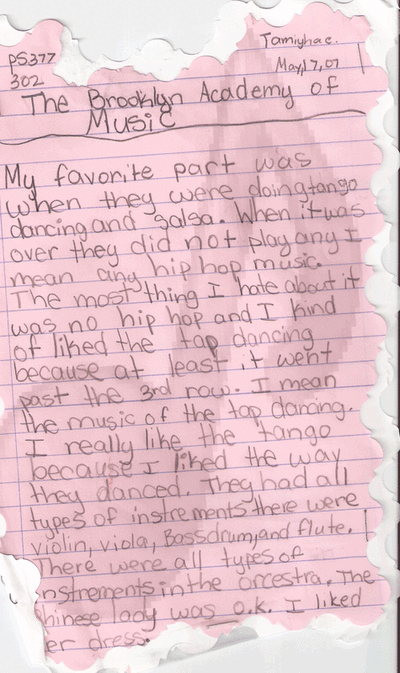 Tamiyhae.
PS377
May,17,07
302
The Brooklyn Academy of
Music
My favorite part was
when they were doing tango
dancing and salsa. When it was
over they did not play any I
mean any hip hop music.
The most thing I hate about it
was no hip hop and I kind
of liked the tap dancing
because at least it went
past the 3rd row. I mean
the music of the tap dancing.
I really like the tango
because I liked the way
they danced. They had all
types of instrements there were
violin, viola, Bassdrum, and flute.
There were all types of
nstrements in the orcestra. The
hinese lady was o.k. I liked
er dress.